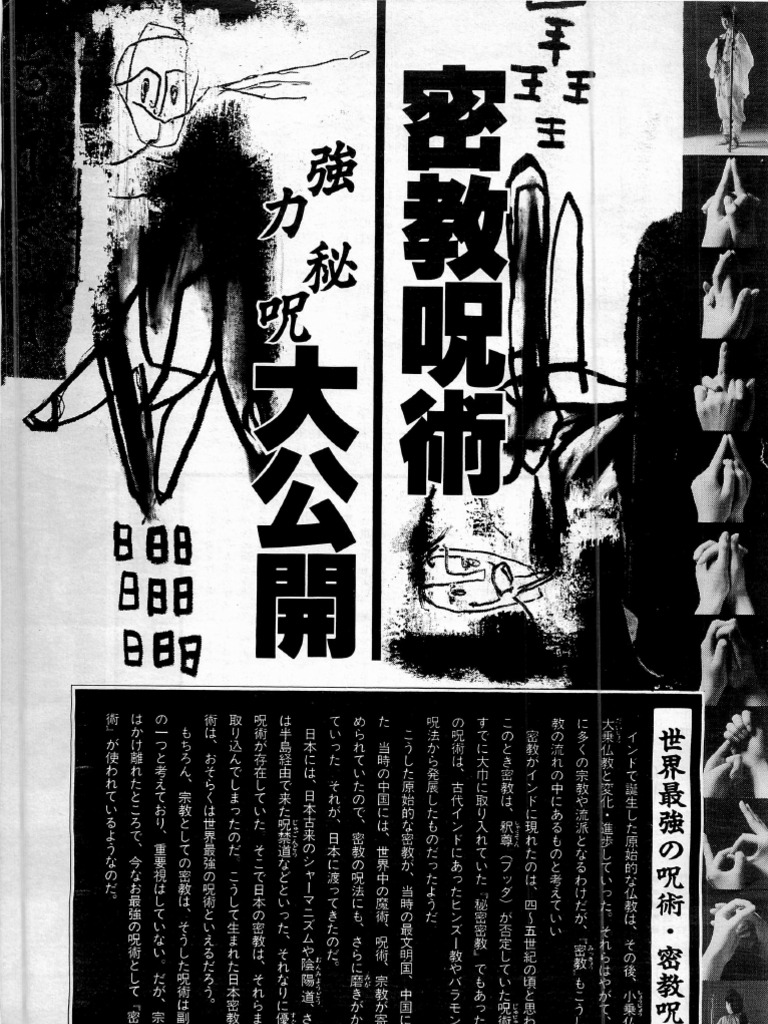 密教呪術
強力秘呪
大公開
王
王王
王
日日日
日日日
日日日
世界最強の呪術・密教呪
インドで誕生した原始的な仏教は、その後、小乗仏
大乗仏教と変化・進歩していった。それらはやがて、
に多くの宗教や流派となるわけだが、「密教」もこうし
教の流れの中にあるものと考えてい
密教がインドに現れたのは、四〜五世紀の頃と思わ
このとき密教は、釈尊(ブッダ)が否定していた呪術
すでに大巾に取り入れていた「秘密密教」でもあった
の呪術は、古代インドにあったヒンズー教やバラモン
呪法から発展したものだったようだ
こうした原始的な密教が、当時の最文明国、中国に
た 当時の中国には、世界中の魔術、呪術、宗教が寄
められていたので、密教の呪法にも、さらに磨きがか
ていった それが、日本に渡ってきたのだ。
日本には、日本古来のシャーマニズムや陰陽道、さ
は半島経由で来た呪禁道などといった、それなりに優
呪術が存在していた そこで日本の密教は、それらま
取り込んでしまったのだ。こうして生まれた日本密教
術は、おそらくは世界最強の呪術といえるだろう。
もちろん、宗教としての密教は、そうした呪術は副
の一つと考えており、重要視はしていない。だが、宗
はかけ離れたところで、今なお最強の呪術として「密
術」が使われているようなのだ。